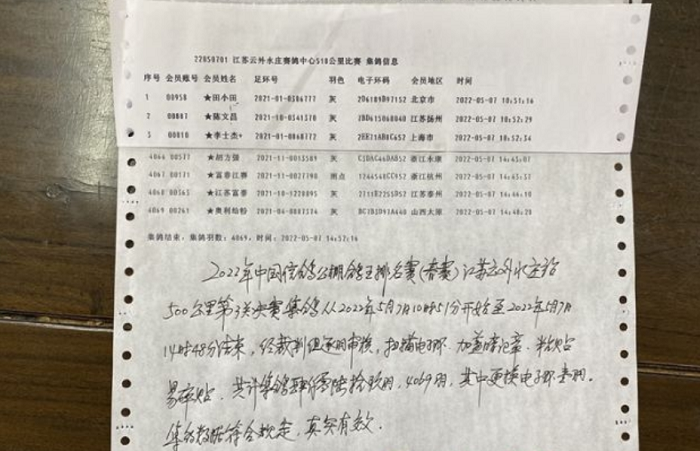 22050701 江苏云外水庄赛鸽中心510公里比赛 集鸽信息
序号 会员账号 会员姓名 足环号 羽色 电子环码 会员地区 时间
1 00958 ★田小田 2021-01-0386777 灰 北京市 2022-05-07 10:51:16
2 ★陈文昌 灰 江苏扬州 2022-05-07 10:52:29
3 00010 ★李士杰+ 2021-01-0068772 灰 上海市 2022-05-07 10:52:34
4066 00577 ★胡方强 灰 浙江永康 2022-05-07 14:43:07
4067 00171 ★富春江赛 2021-11-0027790 雨点 浙江杭州 2022-05-07
4068 00563 ★江苏富泰 2021-10-1220895 灰 江苏泰州 2022-05-07 14:46:10
4069 00263 ★奥利给特 2021-04-0087574 灰 山西太原 2022-05-07 14:48:20
集鸽结束，集鸽羽数：4069，时间：2022-05-07 14:52:16
2022年中国信鸽公棚鸽王排名赛(春赛)江苏云外水庄站
500公里第3关决赛集鸽从2022年5月7日10时51分开始至2022年5月7日
14时48分结束，经裁判组逐羽审核，扫描电子环、加盖暗记章、粘贴
易碎贴，共计集鸽肆仟零陆拾玖羽，4069羽，其中更换电子环羽。
集鸽数据符合规定，真实有效。